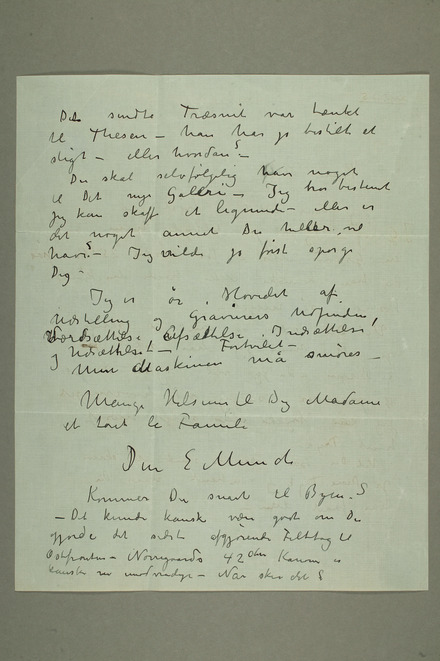 Det sendte Træsnit var tænkt
til Thesen – han har jo bestilt et
sligt – eller hvordan?
Du skal selvfølgelig have noget
til Det nye Galleri – Jeg tror bestemt
jeg kan skaffe et lignende – eller er
det noget annet Du heller vil
have? – Jeg vilde jo først spørge
Dig –
Jeg er ør i Hovedet af
Udstilling og Gravurers Udfinden,
Værdsættelse Afsættelse, Indsættelse
og Udsættelse! – Fortvilet –
Men Maskinen må smøres –
Mange Hilsener til Dig Madame
et tout la Famile
Din E Munch
Kommer Du snart til Byen?
– Det kunde kanske være godt om Du
gjorde det sidste afgjørende Felttog til
Ostfronten – Norregaards 42 Kanon er
kanske nødvendige – Når sker det?